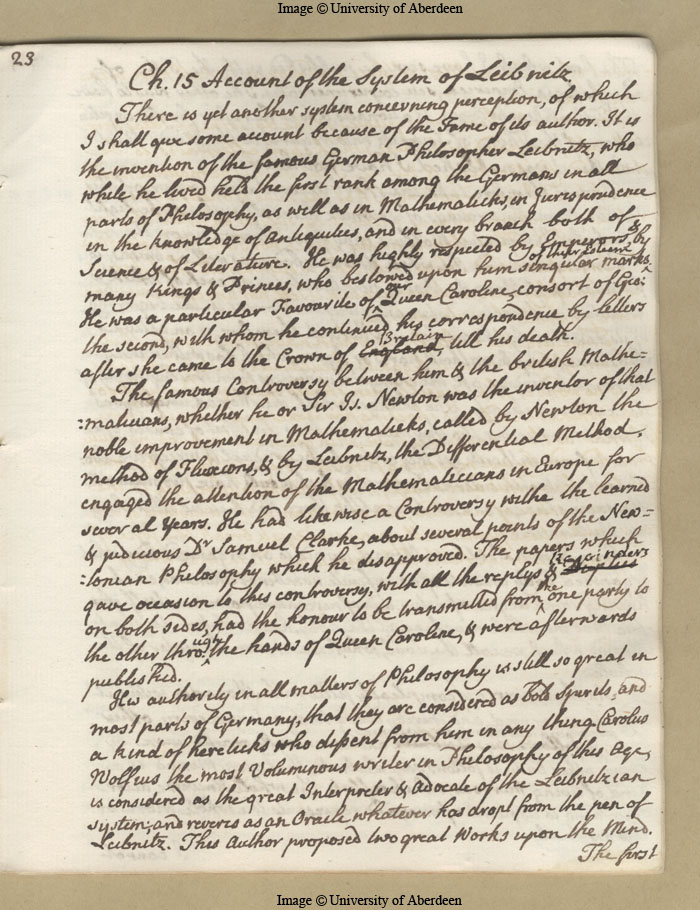 Image © University of Aberdeen
23
Ch. 15 Account of the System of Leibnitz.
There is yet another system concerning perception, of which
I shall give some account because of the Fame of its author. It is
the invention of the famous German Philosopher Leibnitz, who
while he lived held the first rank among the Germans in all
parts of Philosophy, as well as in Mathematicks, in Jurisprudence
in the knowledge of antiquities, and in every branch both of
Science & of Literature. He was highly respected by Emperors, & by
many Kings & Princes, who bestowed upon him singular marks of their Esteem
He was a particular Favourite of our Queen Caroline, consort of Geo:
the second, with whom he continued his correspondence by letters
after she came to the Crown of England Britain, till his death.
The famous Controversy between him & the british Mathe=
=maticians, whether he or Sir Is. Newton was the inventor of that
noble improvement in Mathematicks, called by Newton the
method of Fluxions, & by Leibnitz, the Differential Method,
engaged the attention of the Mathematicians in Europe for
several years. He had likewise a Controversy withe the learned
& judicious Dr Samuel Clarke, about several points of the New=
=tonian Philosophy which he disapproved. The papers which
gave occasion to this controversy, with all the replys & Rejoinders
on both sides, had the honour to be transmitted from the one party to
the other through the hands of Queen Caroline, & were afterwards
published.
His authority in all matters of Philosophy is still so great in
most parts of Germany, that they are considered as bold Spirits, and
a kind of hereticks who dissent from him in any thing. Carolus
Wolfius the most Voluminous writer in Philosophy of this Age,
is considered as the great Interpreter & Advocate of the Leibnitzian
system, and reveres as an Oracle whatever has dropt from the pen of
Leibnitz. This Author proposed two great Works upon the Mind.
The first
Image © University of Aberdeen